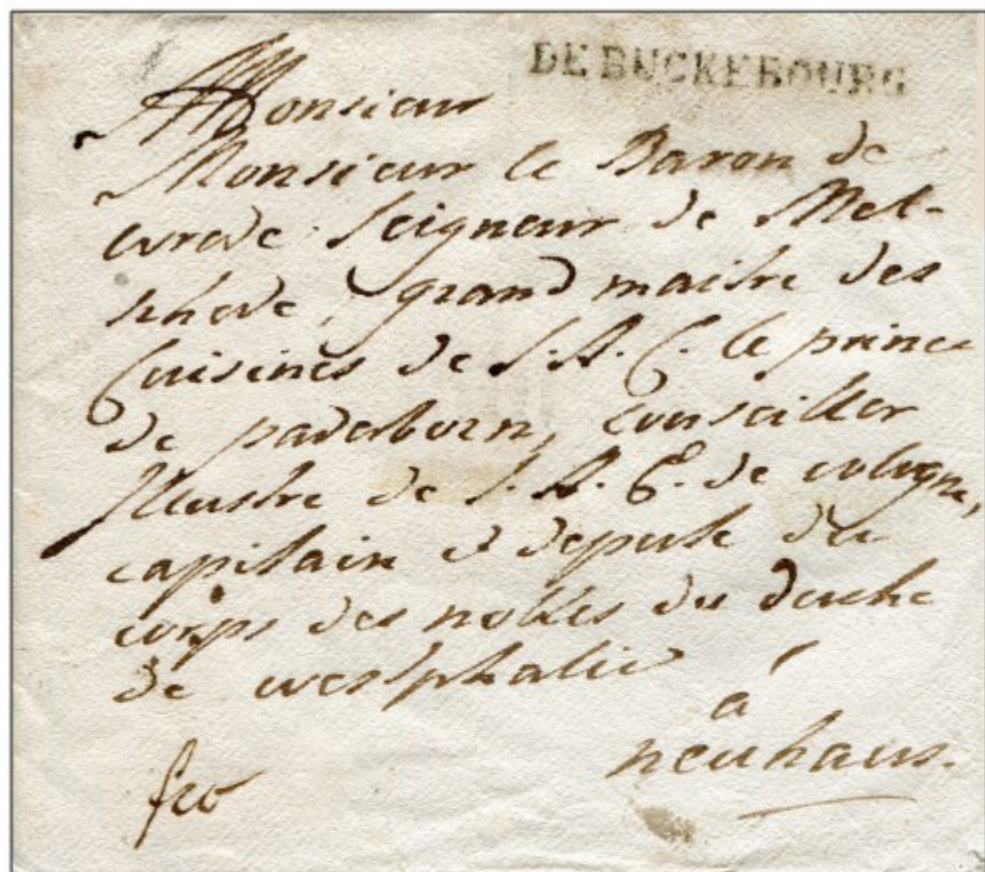 DE BUCKEBOURG
Monsieur
Monsieur le Baron de
wrede Seigneur de Mel-
schede, grand maitre des
Cuisines de S. A. C. le prince
de paderborn, Conseiller
Illustre de S. A. E. de cologne,
capitaine et depute du
corps des nobles du duche
de westphalie
a
neuhaus.
fco